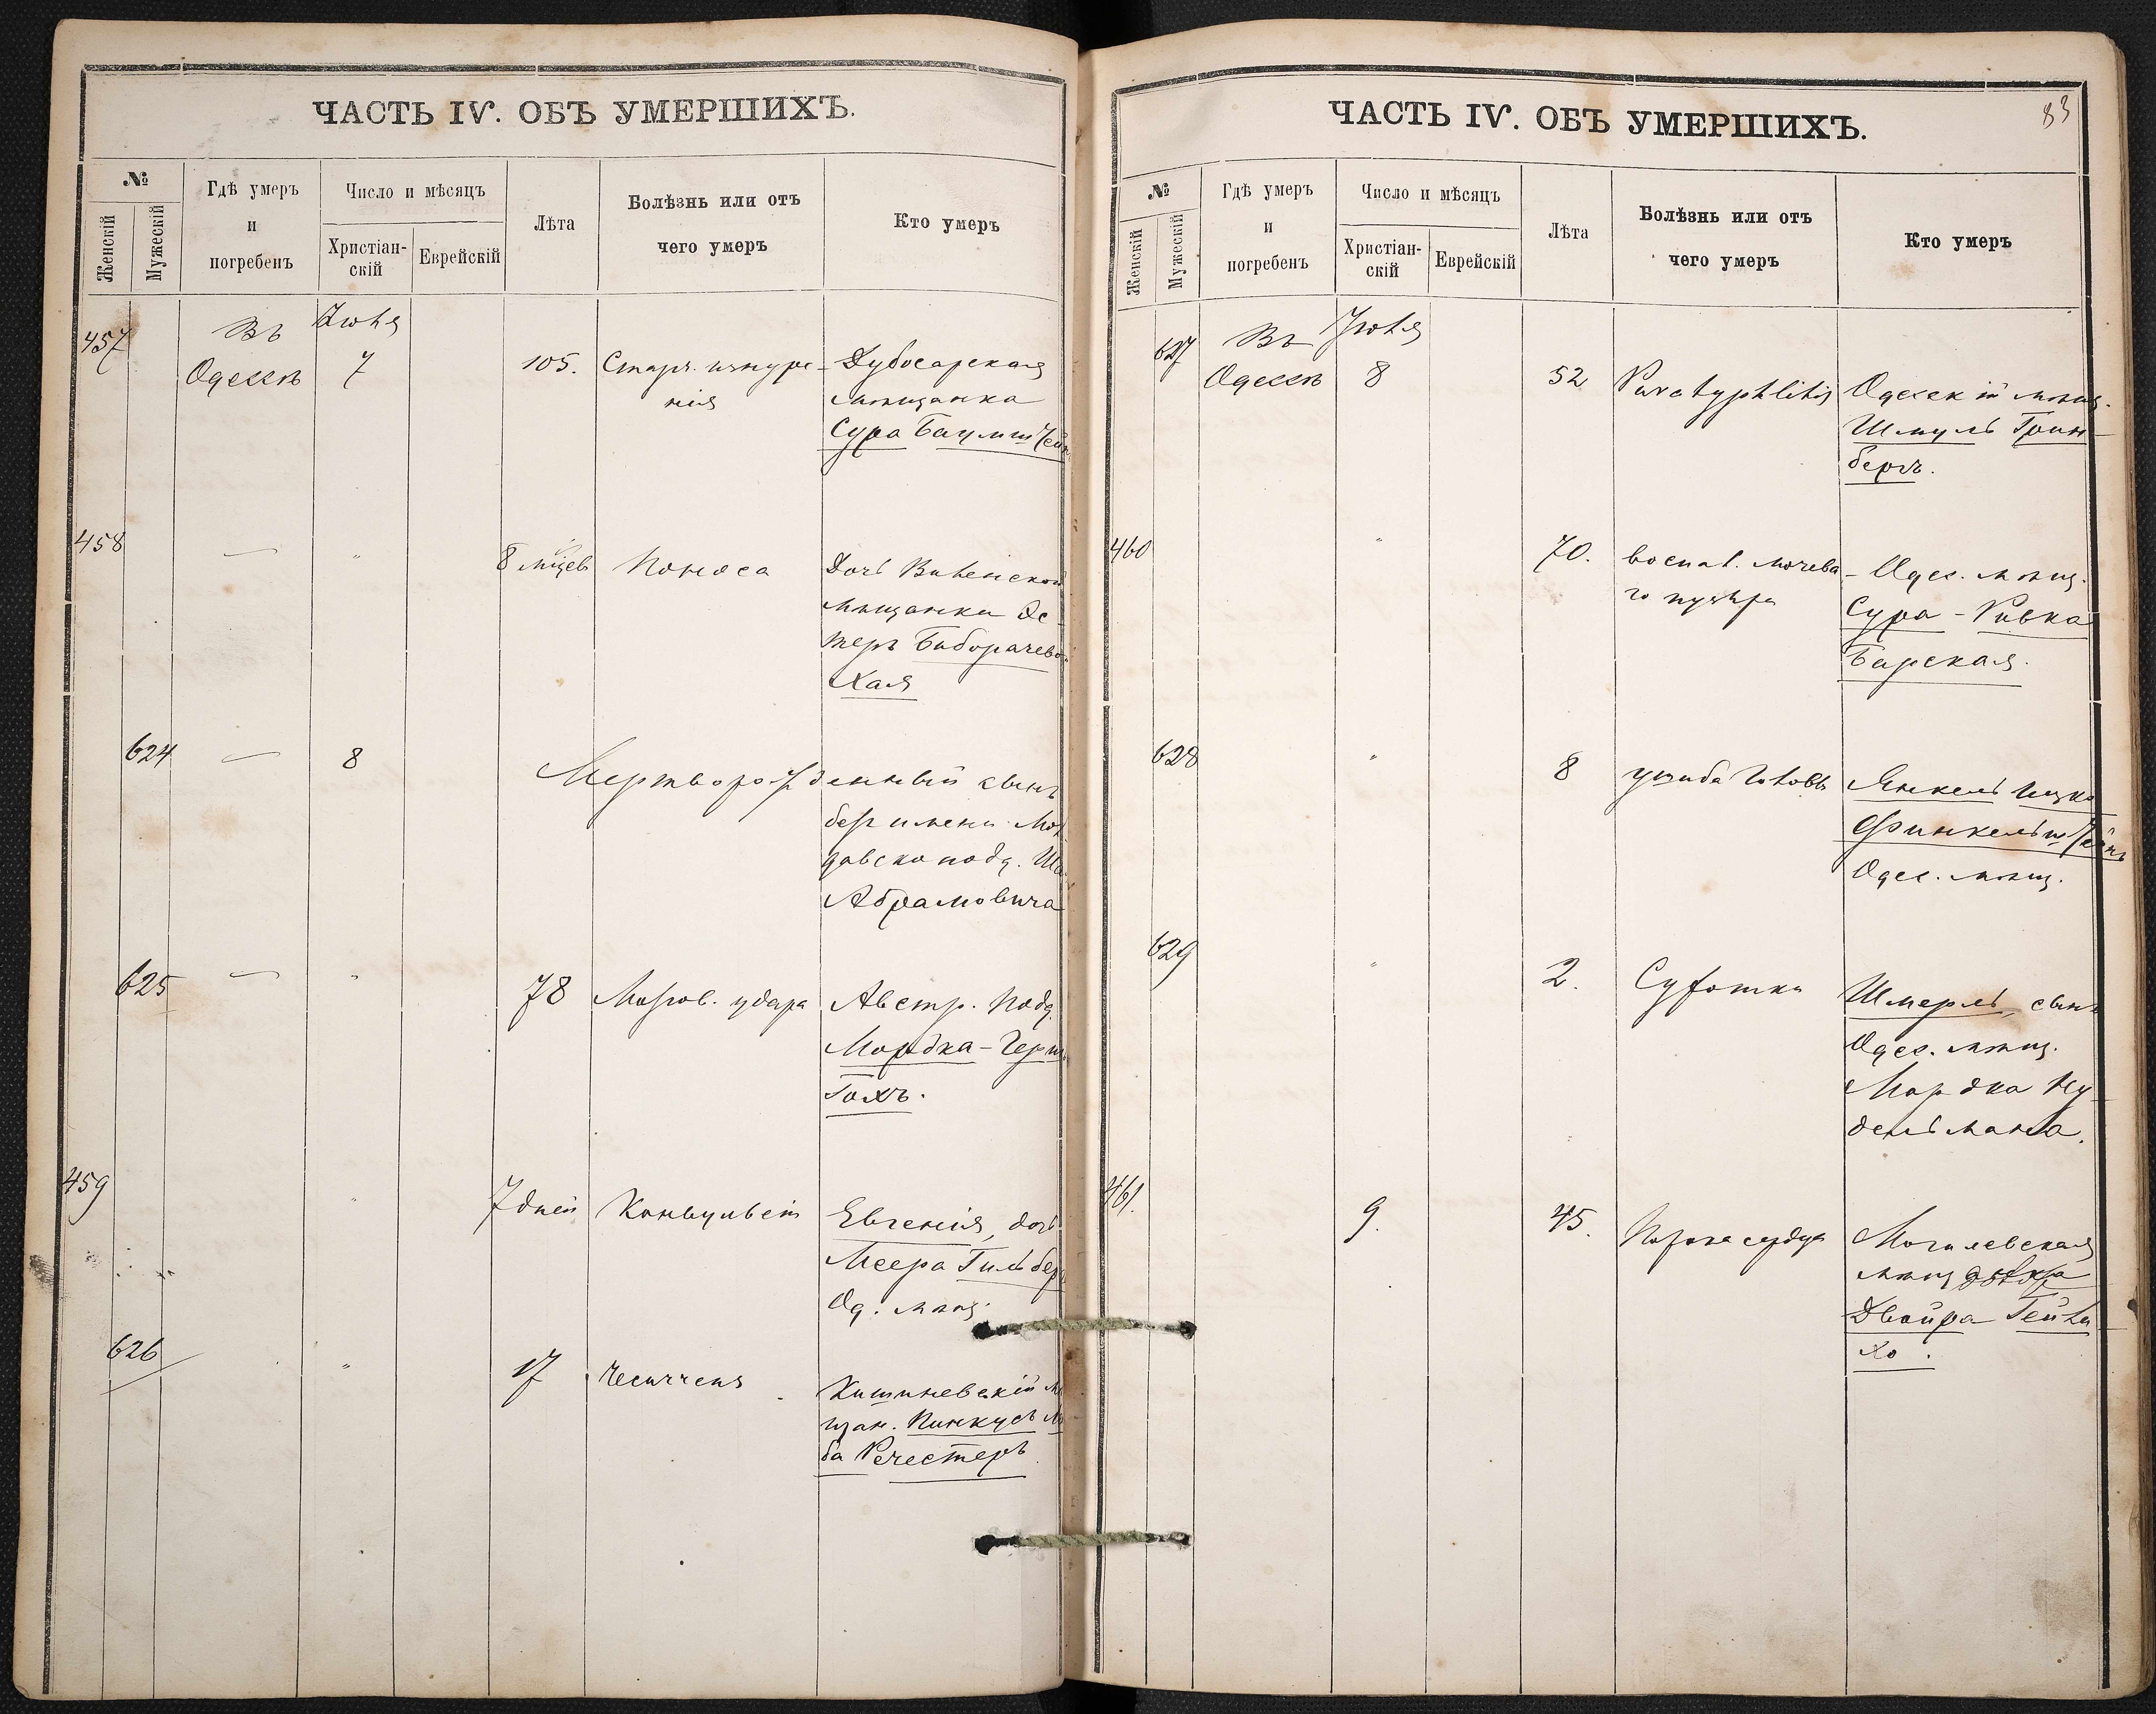 ЧАСТЬ IV. ОБЪ УМЕРШИХЪ.
№
Женскій
Мужескій
Гдѣ умеръ
и
погребенъ
Число и мѣсяцъ
Христіан-
скій
Еврейскій
Лѣта
Болѣзнь или отъ
чего умеръ
Кто умеръ
457
Въ
Одессѣ
Іюня
7
105.
Старч. изнуре-
нія
Дубосарская
мѣщанка
Сура Баумштейн
458
—
"
8 мцевъ
Поноса
Дочь Виленской
мѣщанки Эс-
теръ
Хая
624
—
8
Мертворожденный сынъ
безъ имени Мол
давско подд.
Абрамовича
625
—
"
78
Мозгов. удара
Австр. подд.
Мордка-Герш
Гохъ.
459
"
7 дней
Конвульсій
Евгенія, дочь
Меера Гильбер
Од. мѣщ.
626
"
17
Кишиневскій м
щан. Пинкусъ
ба Речестеръ
ЧАСТЬ IV. ОБЪ УМЕРШИХЪ.
83
№
Женскій
Мужескій
Гдѣ умеръ
и
погребенъ
Число и мѣсяцъ
Христіан-
скій
Еврейскій
Лѣта
Болѣзнь или отъ
чего умеръ
Кто умеръ
627
Въ
Одессѣ
Іюня
8
52
Paratyphlitis
Одесскій мѣщ.
Шмуль Грин-
бергъ.
460
"
70.
воспал. мочева-
го пузыря
Одес. мѣщ.
Сура-Ривка
Барская.
628
"
8
ушиба головы
Янкель Ицко
Финкельштейнъ
Одес. мѣщ.
629
"
2.
Сухотки
Шмерль, сынъ
Одес. мѣщ.
Мордка Ну-
дельмана.
461.
9.
45.
Порока сердца
Могилевская
мѣщ
Двойра Гейли-
хо.